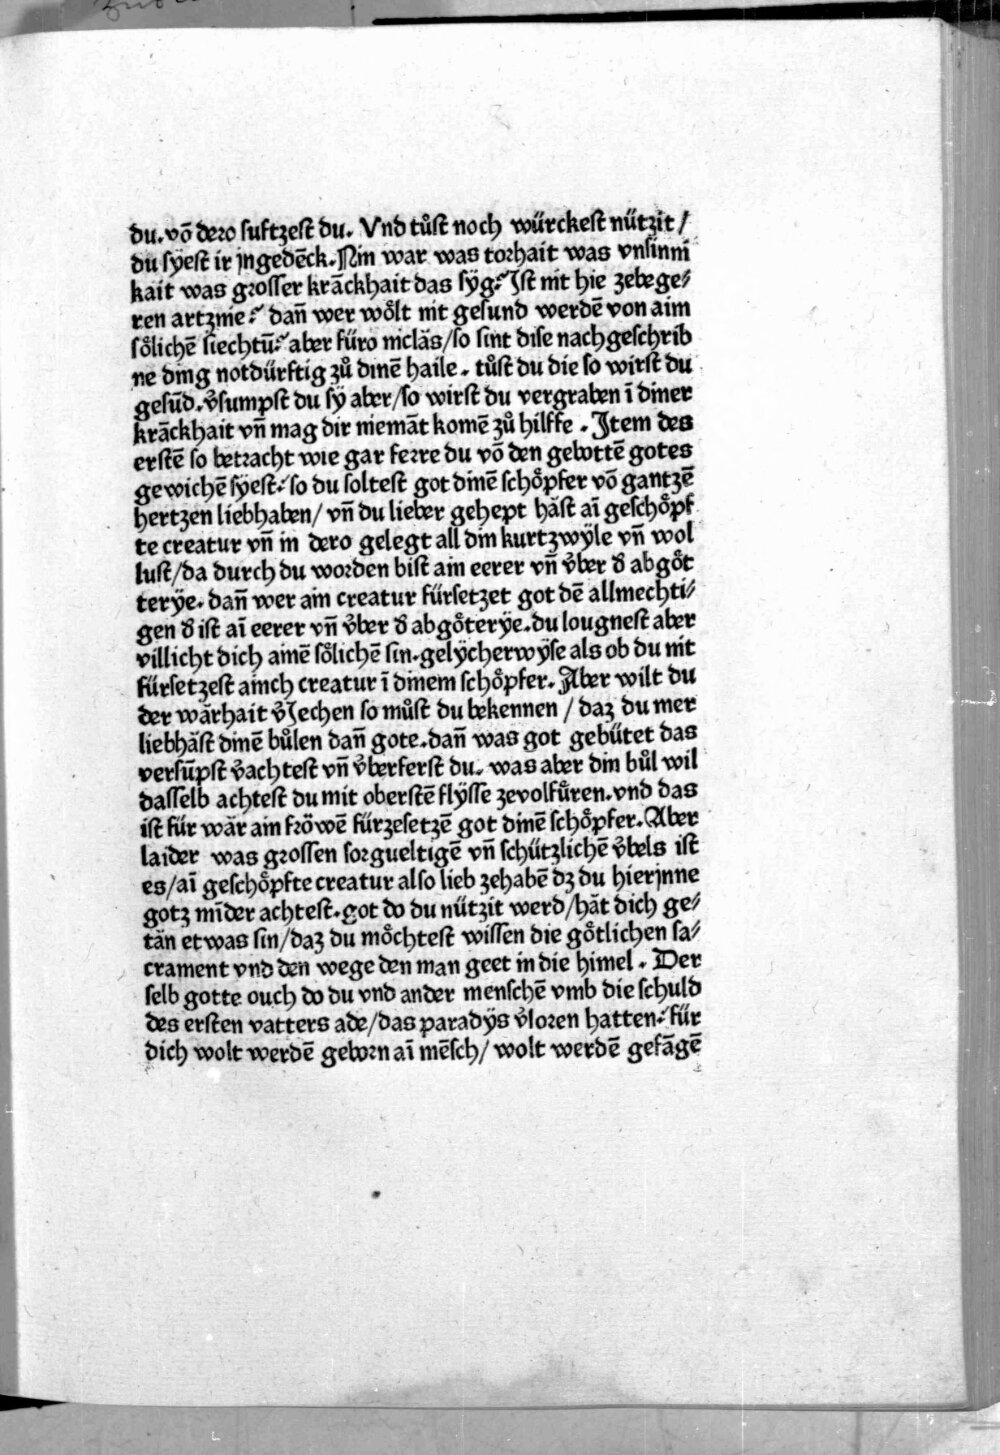 du. vō dero suftzest du. Vnd tůst noch würckest nützit /
du sÿest ir jngedēck. Nin war was torhait was vnsinni
kait was grosser krāckhait das sÿg? Ist nit hie zebege⸗
ren artznie? dan̄ wer wo̊lt nit gesund werdē von aim
so̊lichē siechtū? aber fūro niclăs/so sint dise nachgeschrib
ne ding notdürftig zů dinē haile. tůst du die so wirst du
gesūd. v̉sumpst du sÿ aber/so wirst du vergraben ī diner
krāckhait vn̄ mag dir niemāt komē zů hilffe. Jtem des
erstē so betracht wie gar ferre du vō den gebottē gotes
gewichē sÿest? so du soltest got dinē scho̊pfer vō gantzē
hertzen liebhaben/ vn̄ du lieber gehept hăst aī gescho̊pf
te creatur vn̄ in dero gelegt all din kurtzwÿle vn̄ wol
lust/da durch du worden bist ain eerer vn̄ v̉ber ꝺ abgo̊t
terÿe. dan̄ wer ain creatur fürsetzet got dē allmechti⸗
gen ꝺ ist aī eerer vn̄ v̉ber ꝺ abgo̊terÿe. du lougnest aber
villicht dich ainē so̊lichē sin. gelÿcherwÿse als ob du nit
fürsetzest ainch creatur ī dinem scho̊pfer. Aber wilt du
der wărhait v̉jechen so můst du bekennen / daz du mer
liebhăst dinē bůlen dan̄ gote. dan̄ was got gebütet das
versūpst v̉achtest vn̄ v̉berferst du. was aber din bůl wil
dasselb achtest du mit oberstē flÿsse zevolfůren. vnd das
ist für wăr ain frŏwē fürzesetzē got dinē scho̊pfer. Aber
laider was grossen sorgueltigē vn̄ schützlichē v̉bels ist
es/aī gescho̊pfte creatur also lieb zehabē dz du hierjnne
gotz mīder achtest. got do du nützit werd/hăt dich ge⸗
tăn etwas sin/daz du mo̊chtest wissen die go̊tlichen sa⸗
crament vnd den wege den man geet in die himel. Der
selb gotte ouch do du vnd ander menschē vmb die schuld
des ersten vatters ade/das paradÿs v̉loren hatten? für
dich wolt werdē geborn aī mēsch/ wolt werdē gefāgē